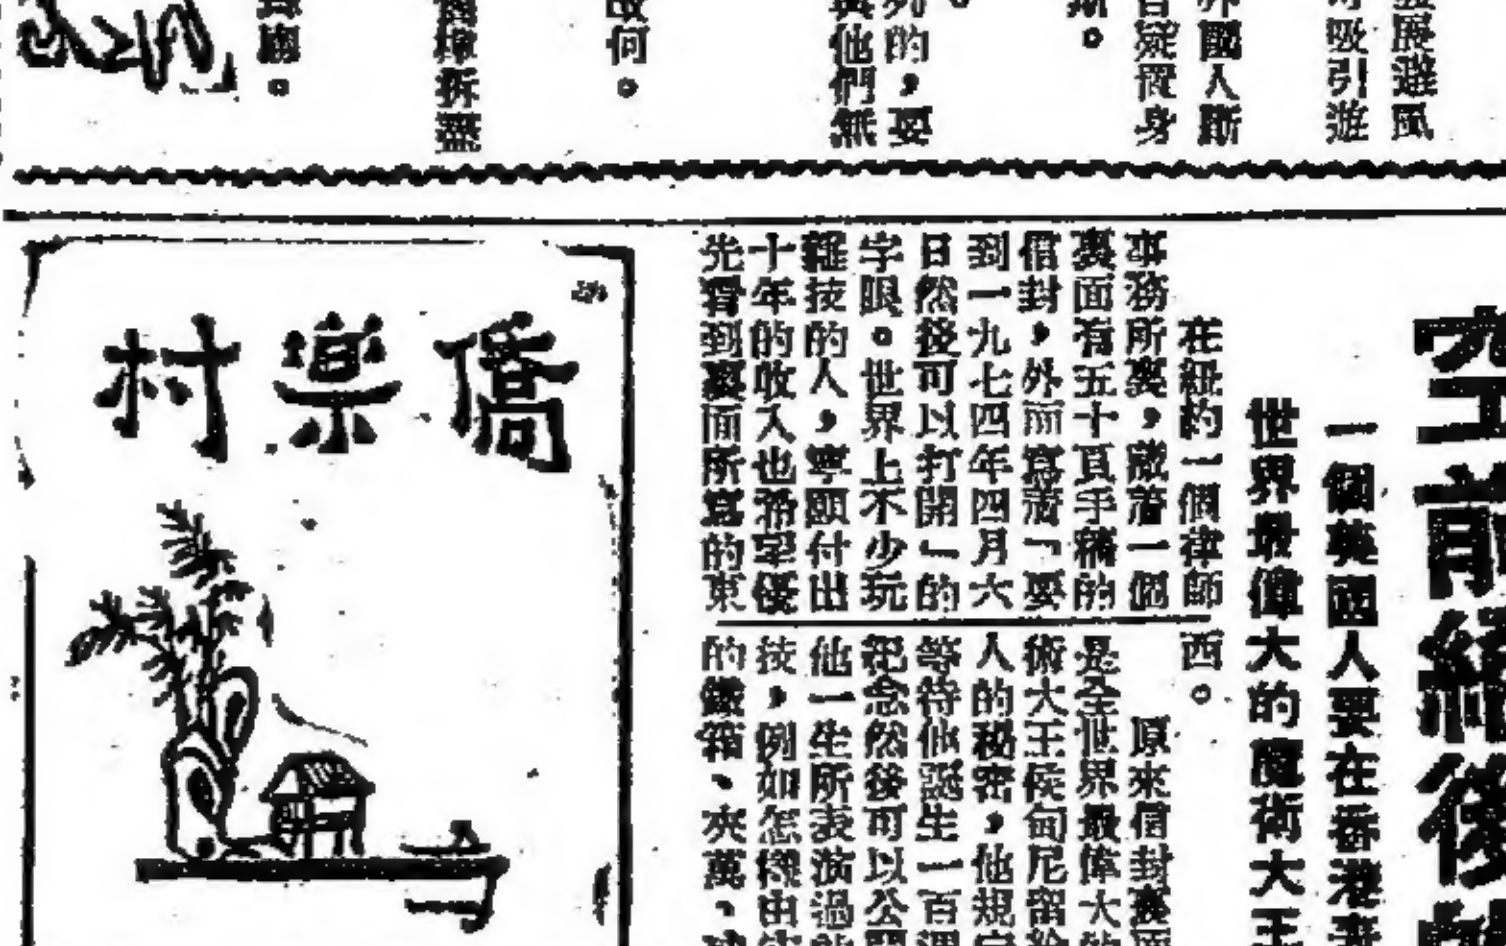 展避風
吸引遊
國人斷
疑置身
。
的，要
他們無
何。
拆盡
。
空前絕後
一個英國人要在香港
世界最偉大的魔術大王
在紐約一個律師
事務所裏，藏着一個
裏面有五十頁手稿的
信封，外面寫着「要
到一九七四年四月六
日然後可以打開」的
字眼。世界上不少玩
雜技的人，寧願付出
十年的收入也希望優
先看到裏面所寫的東
西。
原來信封裏面
是全世界最偉大的
術大王侯甸尼留給
人的秘密，他規定
等待他誕生一百週
紀念然後可以公開
他一生所表演過
技，例如怎樣由
的鐵箱、夾萬、
僑樂村